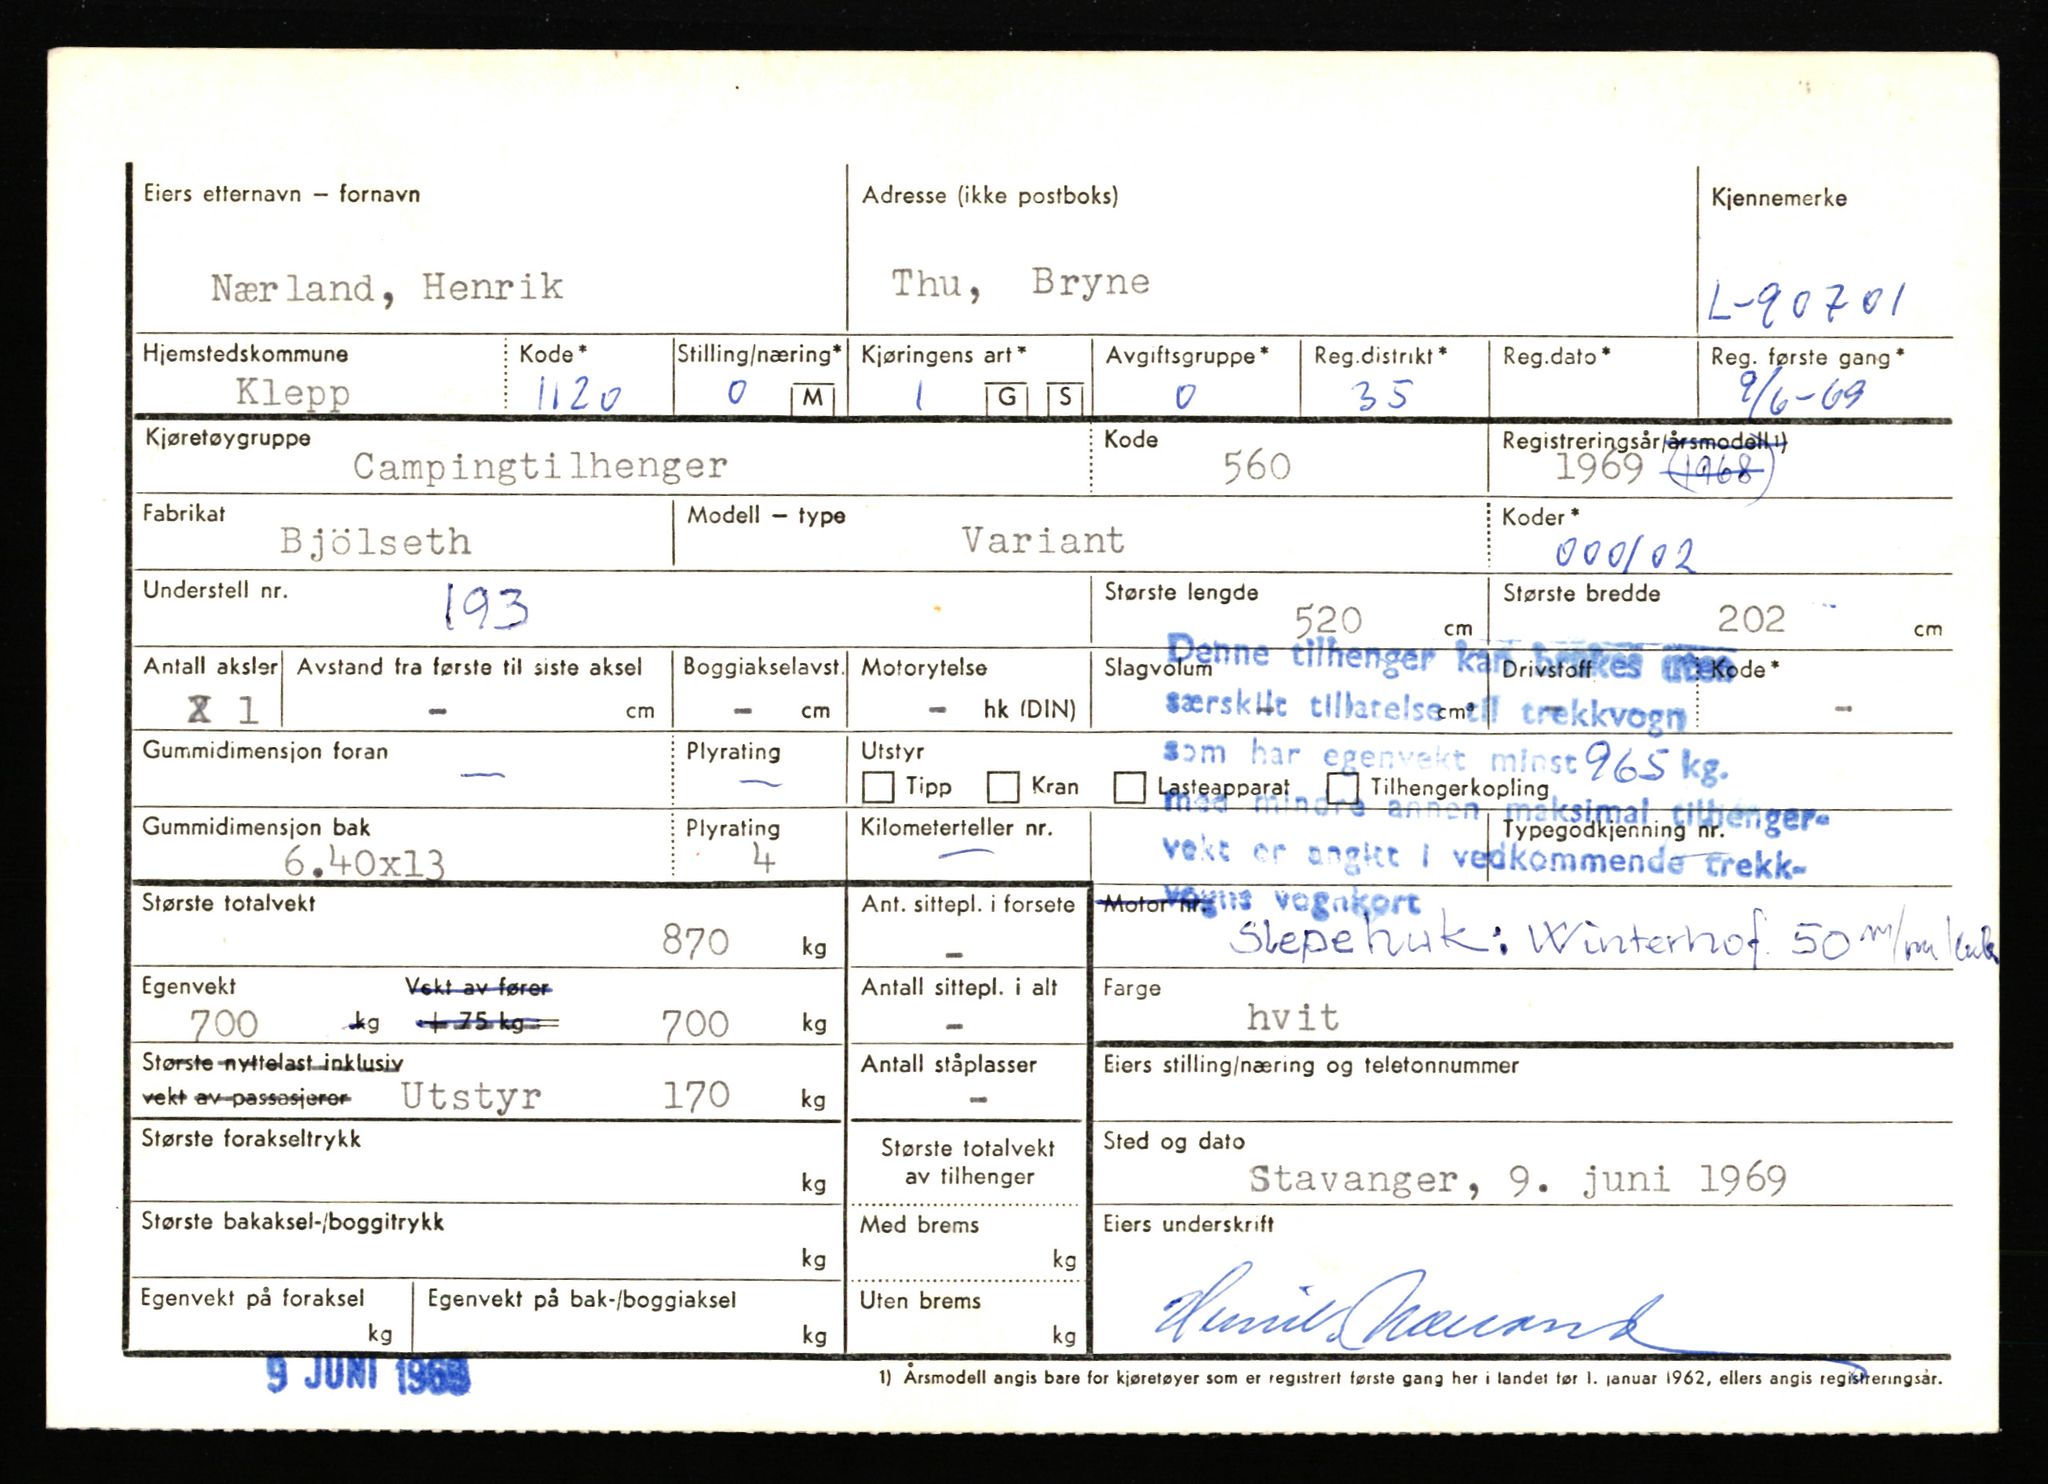 Eiers etternavn – fornavn
Adresse (ikke postboks)
Kjennemerke
Nærland, Henrik
Thu, Bryne
L-90701
Hjemstedskommune
Kode*
Stilling/næring*
Kjøringens art*
Avgiftsgruppe*
Reg.distrikt*
Reg.dato*
Reg. første gang*
Klepp
1120
0 M
1 G S
0
35
9/6-69
Kjøretøygruppe
Kode
Registreringsår/årsmodell 1)
Campingtilhenger
560
1969 (1968)
Fabrikat
Modell – type
Koder*
Bjölseth
Variant
000/02
Understell nr.
193
Største lengde
520 cm
Største bredde
202 cm
Antall aksler
Avstand fra første til siste aksel
Boggiakselavst.
Motorytelse
Slagvolum
Drivstoff
Kode*
X 1
- cm
- cm
- hk (DIN)
- cm³
-
-
Denne tilhenger kan brukes uten
særskilt tillatelse til trekkvogn
som har egenvekt minst 965 kg.
med mindre annen maksimal tilhenger-
vekt er angitt i vedkommende trekk-
vogns vognkort
Gummidimensjon foran
—
Plyrating
—
Utstyr
Tipp
Kran
Lasteapparat
Tilhengerkopling
Gummidimensjon bak
6.40x13
Plyrating
4
Kilometerteller nr.
—
Typegodkjenning nr.
Største totalvekt
870 kg
Ant. sittepl. i forsete
-
Motor nr.
Slepehuk: Winterhof 50 m/m
Egenvekt
700 kg
Vekt av fører
+ 75 kg =
700 kg
Antall sittepl. i alt
-
Farge
hvit
Største nyttelast inklusiv
vekt av passasjerer Utstyr 170 kg
Antall ståplasser
-
Eiers stilling/næring og telefonnummer
Største forakseltrykk
kg
Største totalvekt
av tilhenger
Sted og dato
Stavanger, 9. juni 1969
Største bakaksel-/boggitrykk
kg
Med brems
kg
Eiers underskrift
Henrik Nærland
Egenvekt på foraksel
kg
Egenvekt på bak-/boggiaksel
kg
Uten brems
kg
9 JUNI 1969
1) Årsmodell angis bare for kjøretøyer som er registrert første gang her i landet før 1. januar 1962, ellers angis registreringsår.